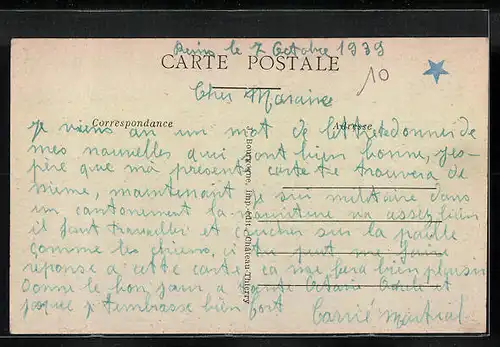 Reims le 7 Octobre 1939
CARTE POSTALE
10
Cher Maraine
Correspondance
Adresse
Je viens an un mot de lettre donner de
mes nouvelles qui sont bien bonne, j'es-
père que ma présente carte te trouvera de
même, maintenant je sui militaire dans
un cantonement la nouriture va assez bien
il faut travailler et coucher sur la paille
comme les chiens, si tu peut me faire
reponse a cette carte, ca me fera bien plaisir
Donne le bon jour a tante Octavie
je t'embrasse bien fort
Carrié Martial
Bourgogne, Imp.-édit., Château-Thierry